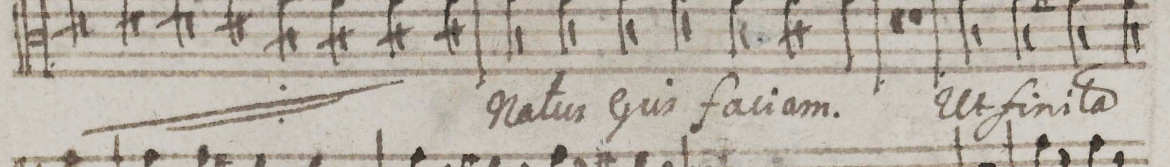 Natus Ejus faciam. Ut finita